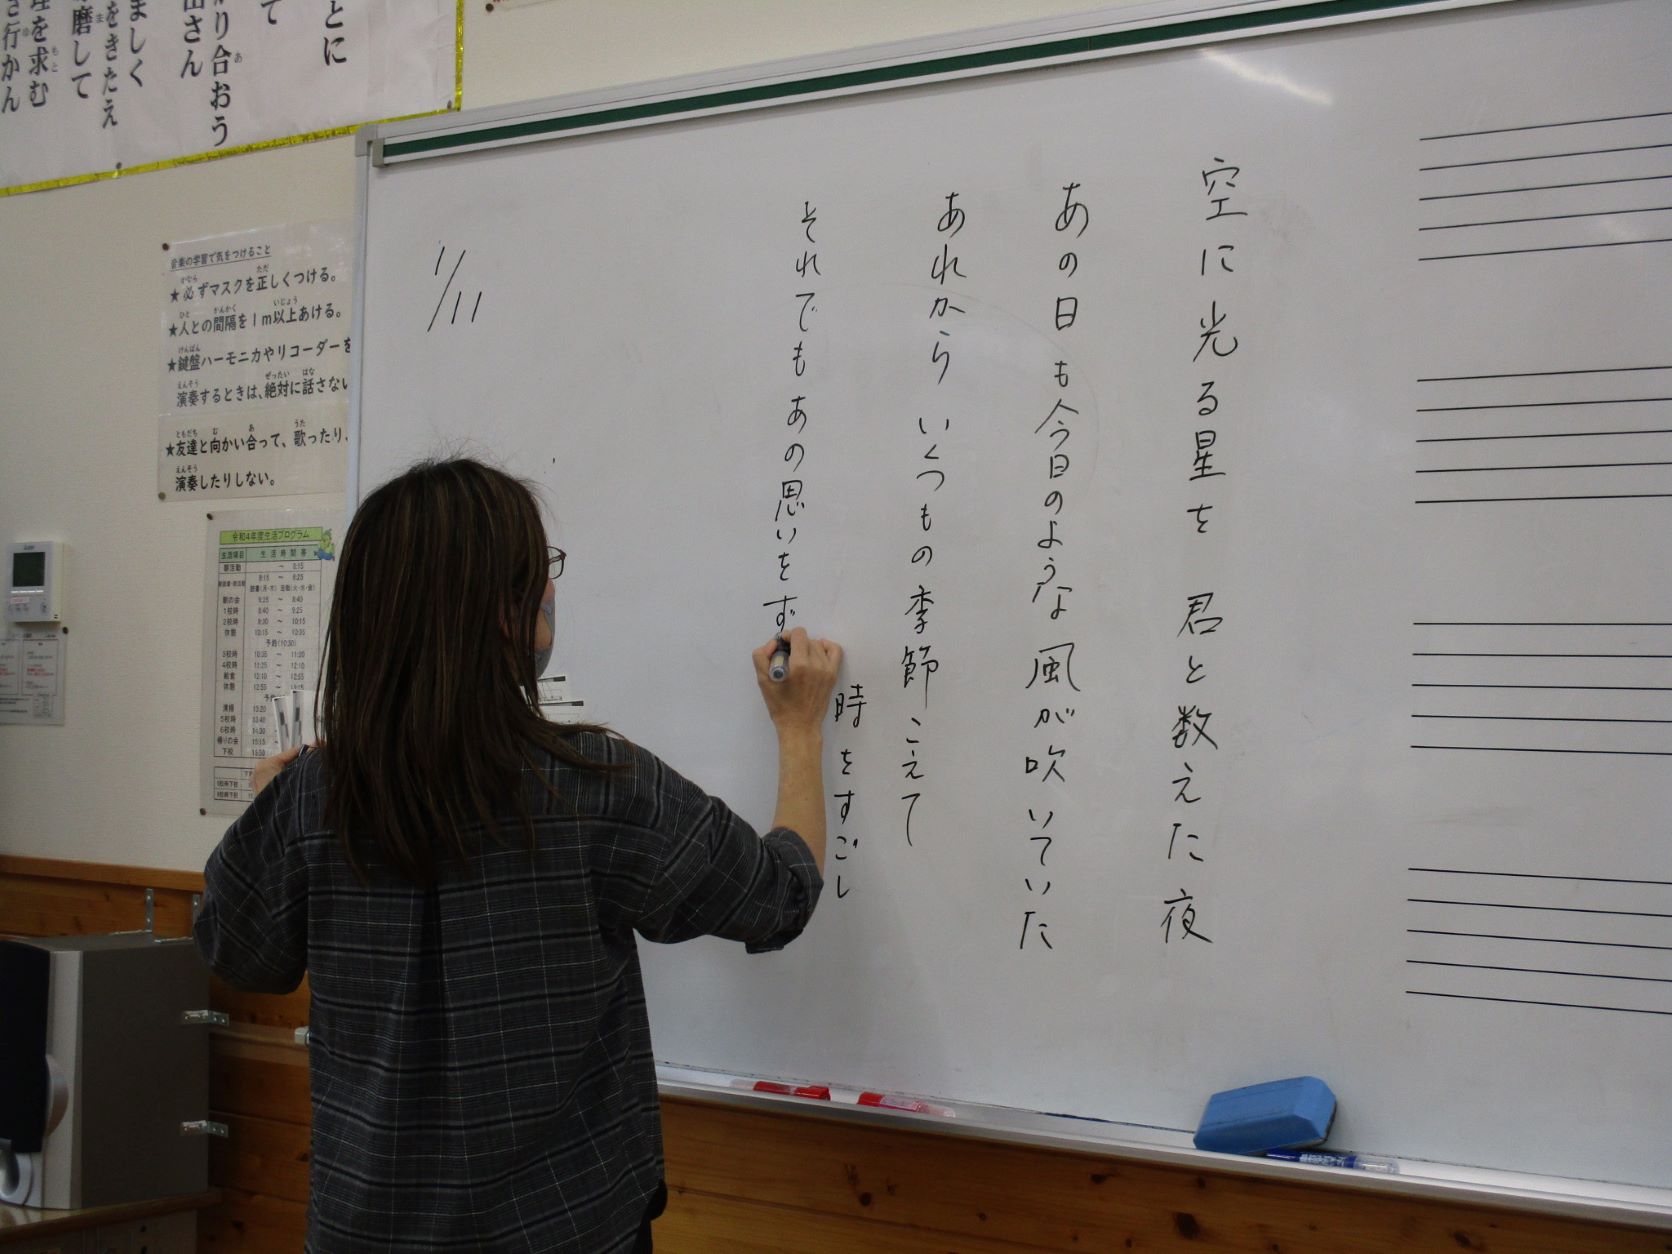 空に光る星を 君と数えた夜
あの日も今日のような風が吹いていた
あれから いくつもの季節こえて
時をすごし
それでもあの思いをず
1/11
とに
て
り合おう
出さん
ましく
をきたえ
磨して
を求む
行かん
音楽の学習で気をつけること
★必ずマスクを正しくつける。
★人との間隔を1m以上あける。
★鍵盤ハーモニカやリコーダーを
演奏するときは、絶対に話さない
★友達と向かい合って、歌ったり、
演奏したりしない。
令和4年度生活プログラム
生活項目 生活時間帯
朝の会 8:25 ～ 8:40
1校時 8:40 ～ 9:25
2校時 9:30 ～ 10:15
休憩 10:15 ～ 10:35
予鈴(10:30)
3校時 10:35 ～ 11:20
4校時 11:25 ～ 12:10
給食 12:10 ～ 12:55
休憩 12:55
清掃 13:20
5校時 13:40
6校時 14:30
帰りの会 15:15
下校